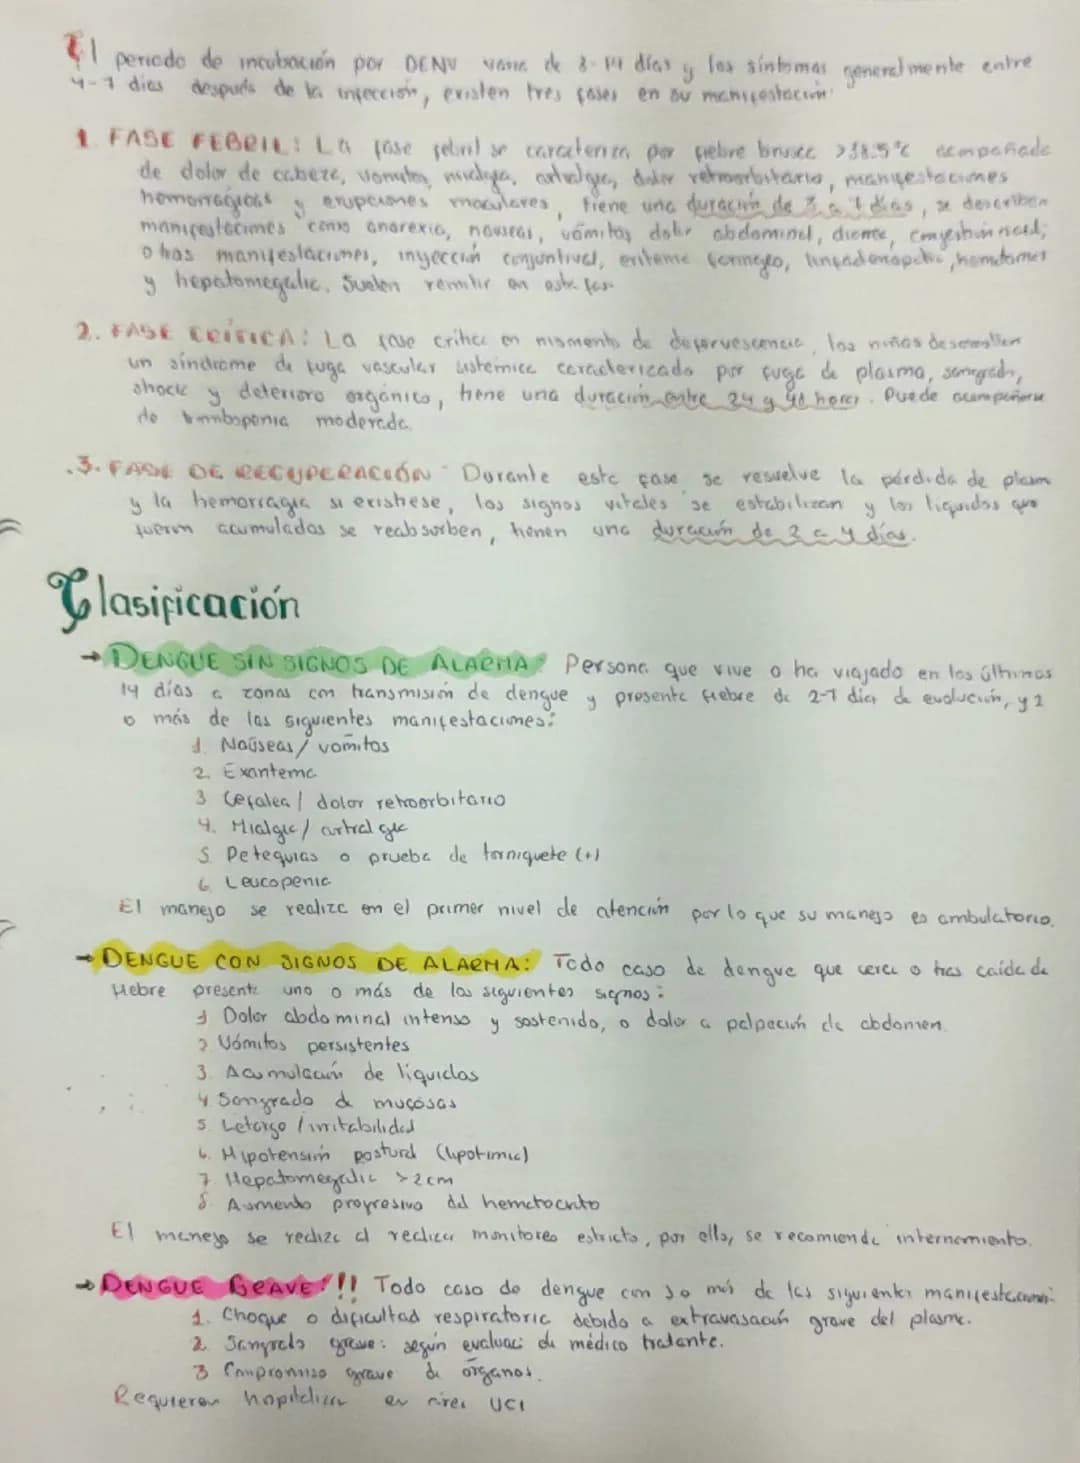 El periodo de incubación por DENV varia de 3-14 días y los síntomas generalmente entre
4-7 dias después de la infección, existen tres fases en su manifestación.
1. FASE FEBRIL: La fase febril se caracteriza por fiebre brusca >38.5°C acompañada
de dolor de cabeza, vomitos, mialgia, artralgia, dolor retroorbitario, manifestaciones
hemorragicas y erupciones maculares, tiene una duración de 3 a 7 dias, se describen
manifestaciones como anorexia, nauseas, vómitos dolor abdominal, diarrea, congestión nasal;
otras manifestaciones, inyección conjuntival, eritema faringeo, linfadenopatia,
y hepatomegalia. Suelen remitir en esta fase
2. FASE CRÍTICA: La fase critica en momento de defervescencia, los niños desarrollan
un síndrome de fuga vascular sistemica caracterizado por fuga de plasma, sangrado,
shock y deterioro orgánico, tiene una duración entre 24 y 48 horas. Puede acompañarse
de trombopenia moderada.
3. FASE DE RECUPERACIÓN: Durante esta fase se resuelve la pérdida de plasm
y la hemorragia si existiese, los signos vitales se estabilizan y los liquidos que
fueron acumulados se reabsorben, tienen una duración de 2 a 4 días.
Clasificación
→ DENGUE SIN SIGNOS DE ALARMA: Persona que vive o ha viajado en los últimos
14 días a zonas con transmisión de dengue y presenta fiebre de 2-7 dias de evolución, y 2
o más de las siguientes manifestaciones:
1. Naúseas/ vomitos
2. Exantema
3 Cefalea/ dolor retroorbitario
4. Mialgia/ artralgia
5. Petequias o prueba de torniquete (+)
6. Leucopenia
El manejo se realiza en el primer nivel de atención por lo que su manejo es ambulatorio.
→ DENGUE CON SIGNOS DE ALARMA: Todo caso de dengue que cerca o tras caída de
fiebre presente uno o más de los siguientes signos:
1 Dolor abdominal intenso y sostenido, o dolor a palpación de abdomen.
2. Vómitos persistentes
3. Acumulación de líquidos
4 Sangrado de mucosas
5. Letargo / irritabilidad
6. Hipotensión postural (lipotimia)
7. Hepatomegalia >2cm
8. Aumento progresivo del hematocrito
El manejo se realiza al realizar monitoreo estricto, por ello, se recomienda internamiento.
→ DENGUE GRAVE!!! Todo caso de dengue con 1 o más de las siguientes manifestaciones:
1. Choque o dificultad respiratoria debido a extravasación grave del plasma.
2. Sangrado grave: según evaluac. de médico tratante.
3 Compromiso grave de órganos.
Requieren hopitalizar en área UCI